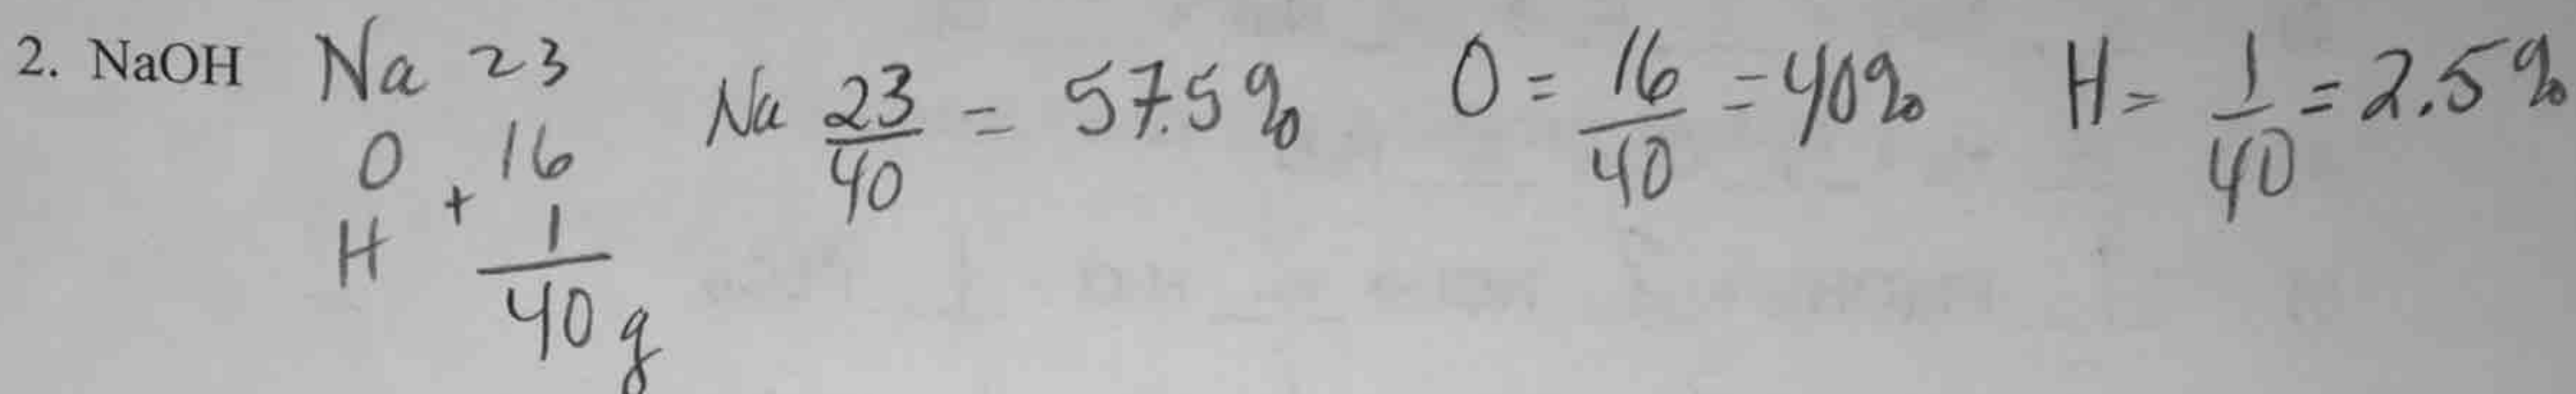 2. NaOH Na 23
O + 16
H 1
40 g
Na 23/40 = 57.5%
O = 16/40 = 40%
H = 1/40 = 2.5%